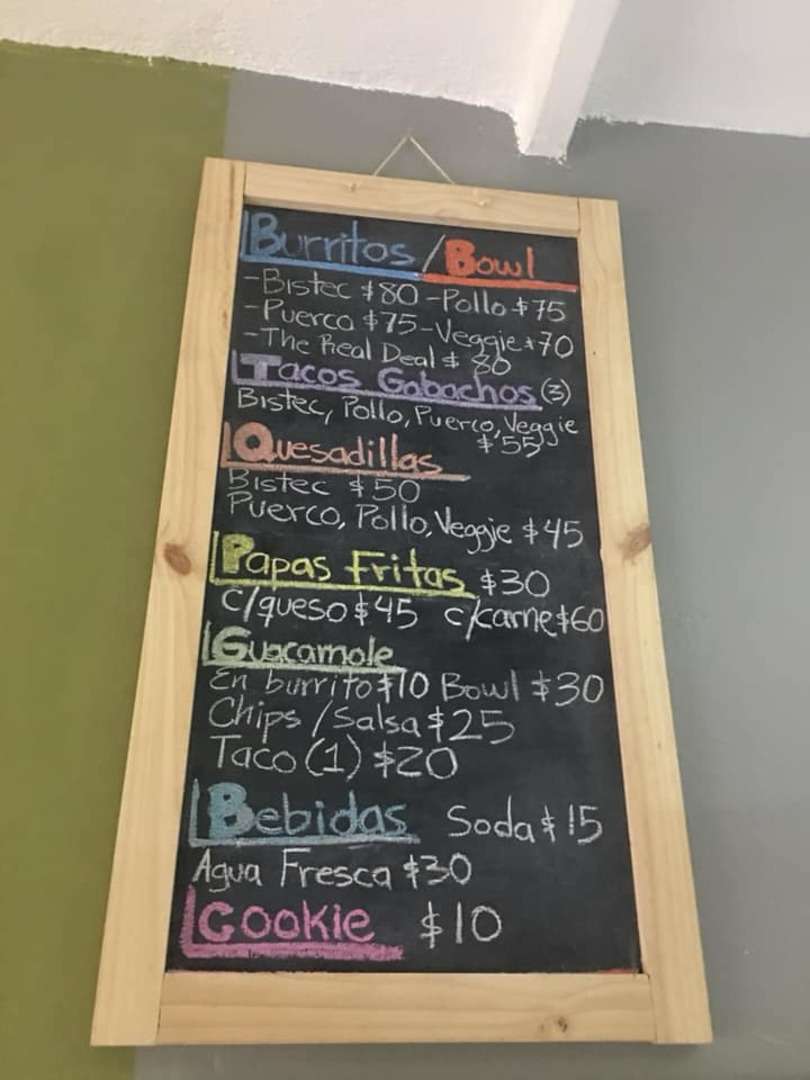 Burritos / Bowl
-Bistec $80 -Pollo $75
-Puerco $75 -Veggie $70
-The Real Deal $ 80
Tacos Gabachos (3)
Bistec, Pollo, Puerco, Veggie
$55
Quesadillas
Bistec $50
Puerco, Pollo, Veggie $45
Papas Fritas $30
c/queso $45 c/carne $60
Guacamole
En burrito $10 Bowl $30
Chips / Salsa $25
Taco (1) $20
Bebidas Soda $15
Agua Fresca $30
Cookie $10